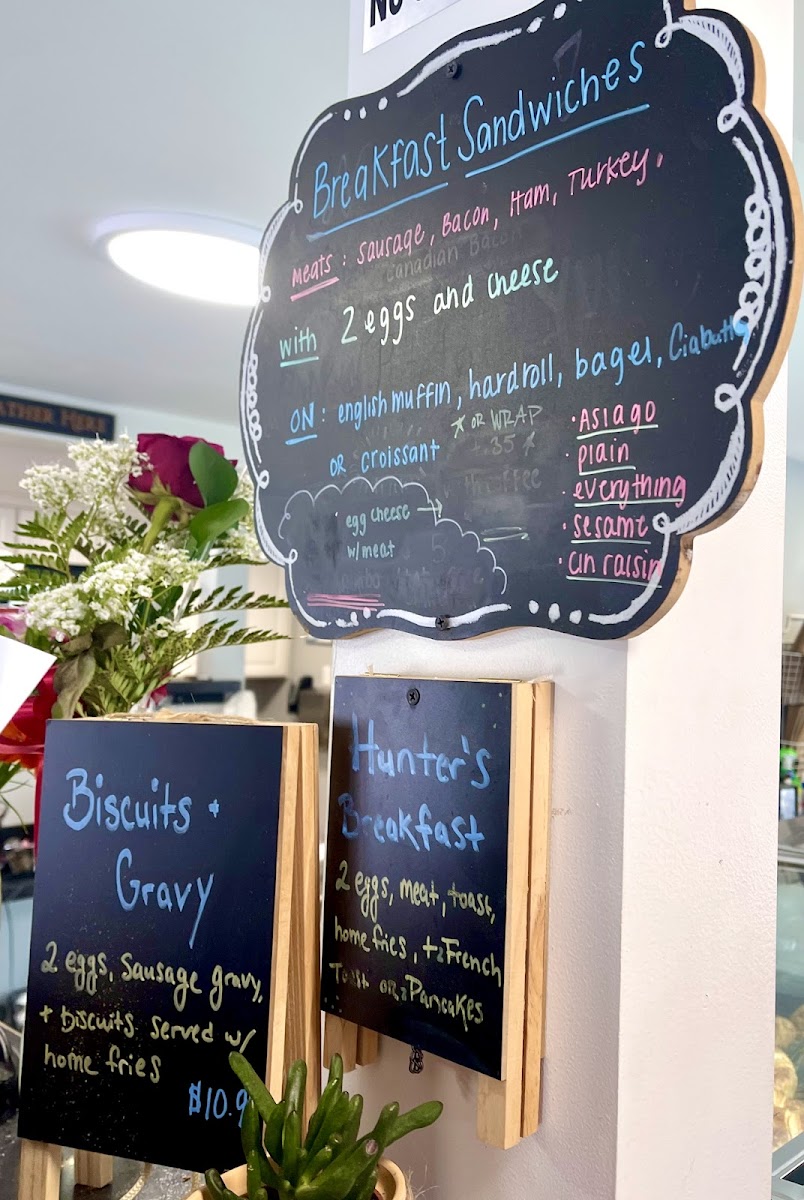 NO
Breakfast Sandwiches
meats: sausage, Bacon, Ham, Turkey,
Canadian Bacon
with 2 eggs and cheese
ON: english muffin, hard roll, bagel, Ciabatta
OR croissant
* OR WRAP
+.35 *
• ASIAGO
• plain
• everything
• sesame
• cin raisin
egg cheese →
w/meat
ATHER HERE
Biscuits +
Gravy
2 eggs, sausage gravy,
+ biscuits served w/
home fries
$10.9
Hunter's
Breakfast
2 eggs, meat, toast,
home fries, + 2 French
Toast or 2 Pancakes